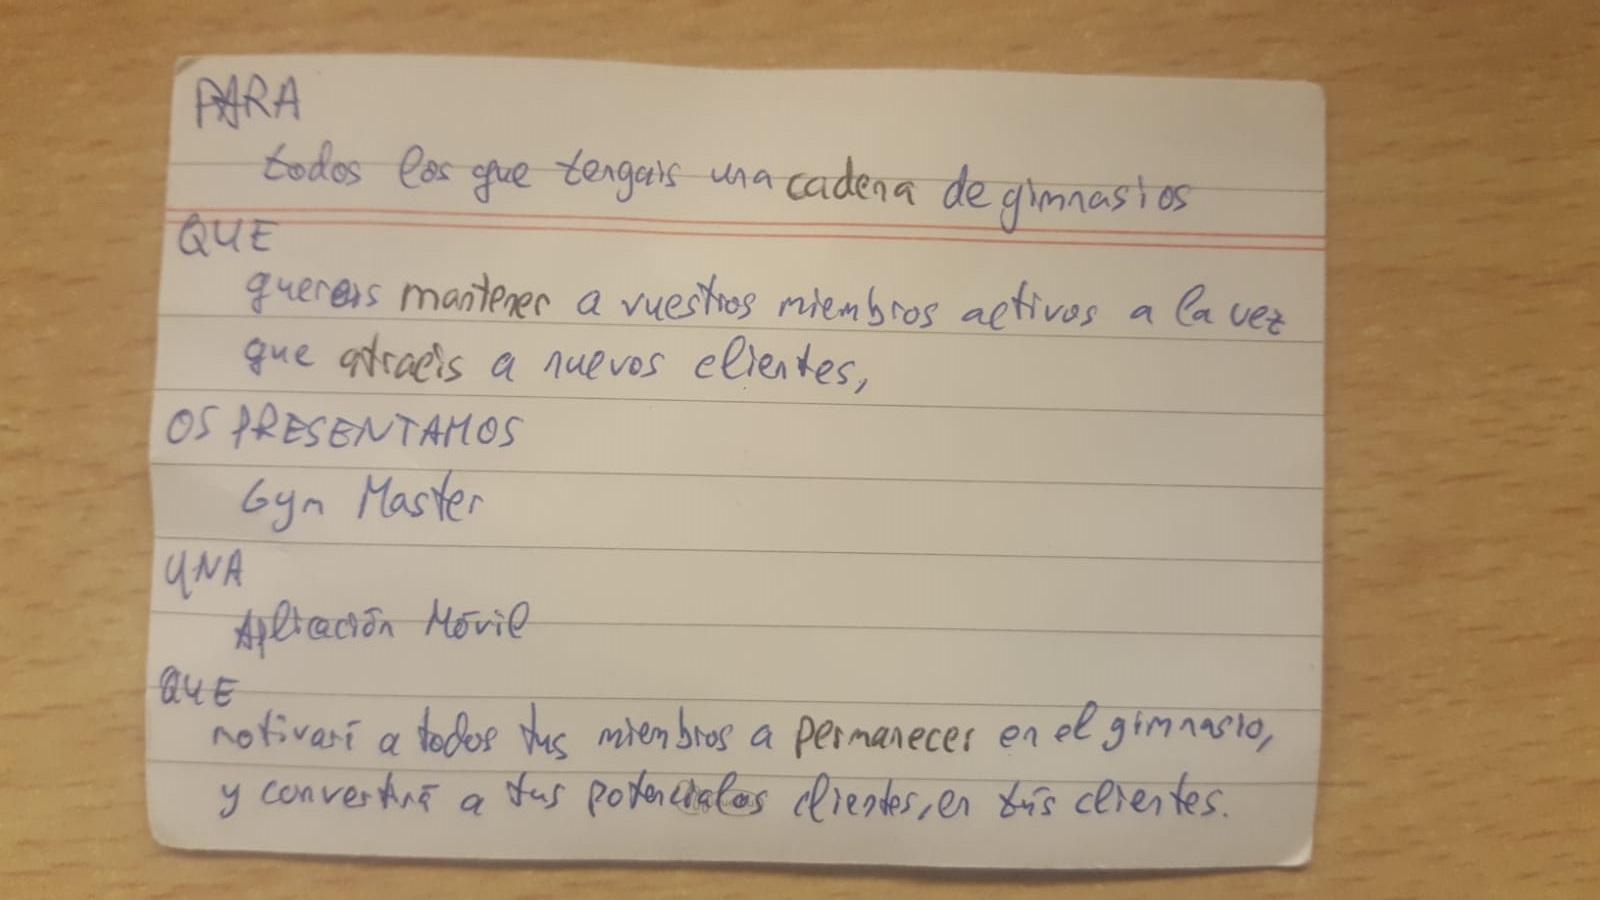 PARA
todos los que tengais una cadena de gimnasios
QUE
quereis mantener a vuestros miembros activos a la vez
que atraeis a nuevos clientes,
OS PRESENTAMOS
Gym Master
UNA
Aplicación Móvil
QUE
motivará a todos tus miembros a permanecer en el gimnasio,
y convertirá a tus potenciales clientes, en tus clientes.